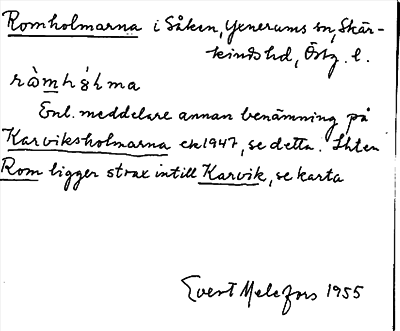 Romholmarna i Såken, Yxnerums sn, Skär-
kinds hd, Östg. l.
Enl. meddelare annan benämning på
Karviksholmarna ek 1947, se detta. Skten
Rom ligger strax intill Karvik, se karta
Evert Melefors 1955